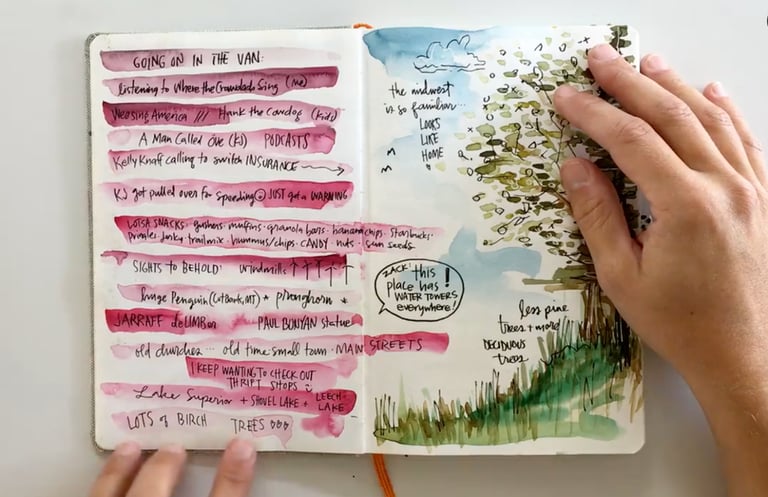 GOING ON IN THE VAN:
listening to Where the Crawdads Sing (me)
America /// Hank the Cowdog (Kids)
A Man Called Ove (KJ) PODCASTS
Kelly Knaff calling to switch INSURANCE
KJ got pulled over for speeding JUST got a WARNING
LOTSA SNACKS · gushers · muffins · granola bars · banana chips · Starbucks ·
pringles · jerky · trailmix · hummus/chips · CANDY · nuts · sun seeds
SIGHTS TO BEHOLD: windmills
huge Penguin (CutBank, MT) + pronghorn
JARRAFF deLIMBer PAUL BUNYAN statue
old churches ... old time small town · MAIN STREETS
I KEEP WANTING to CHECK OUT
THRIFT SHOPS
Lake Superior + SHOVEL LAKE + LEECH
LAKE
LOTS of BIRCH TREES
the midwest
is so familiar...
LOOKS
LIKE
HOME
ZACK: this
place has
WATER TOWERS
everywhere!
less pine
trees + more
DECIDUOUS
trees